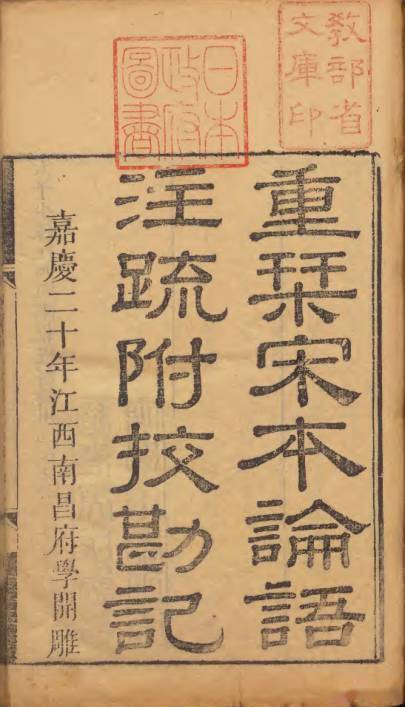 教部省
文庫印
日本
政府
圖書
重栞宋本論語
注疏附挍勘記
嘉慶二十年江西南昌府學開雕